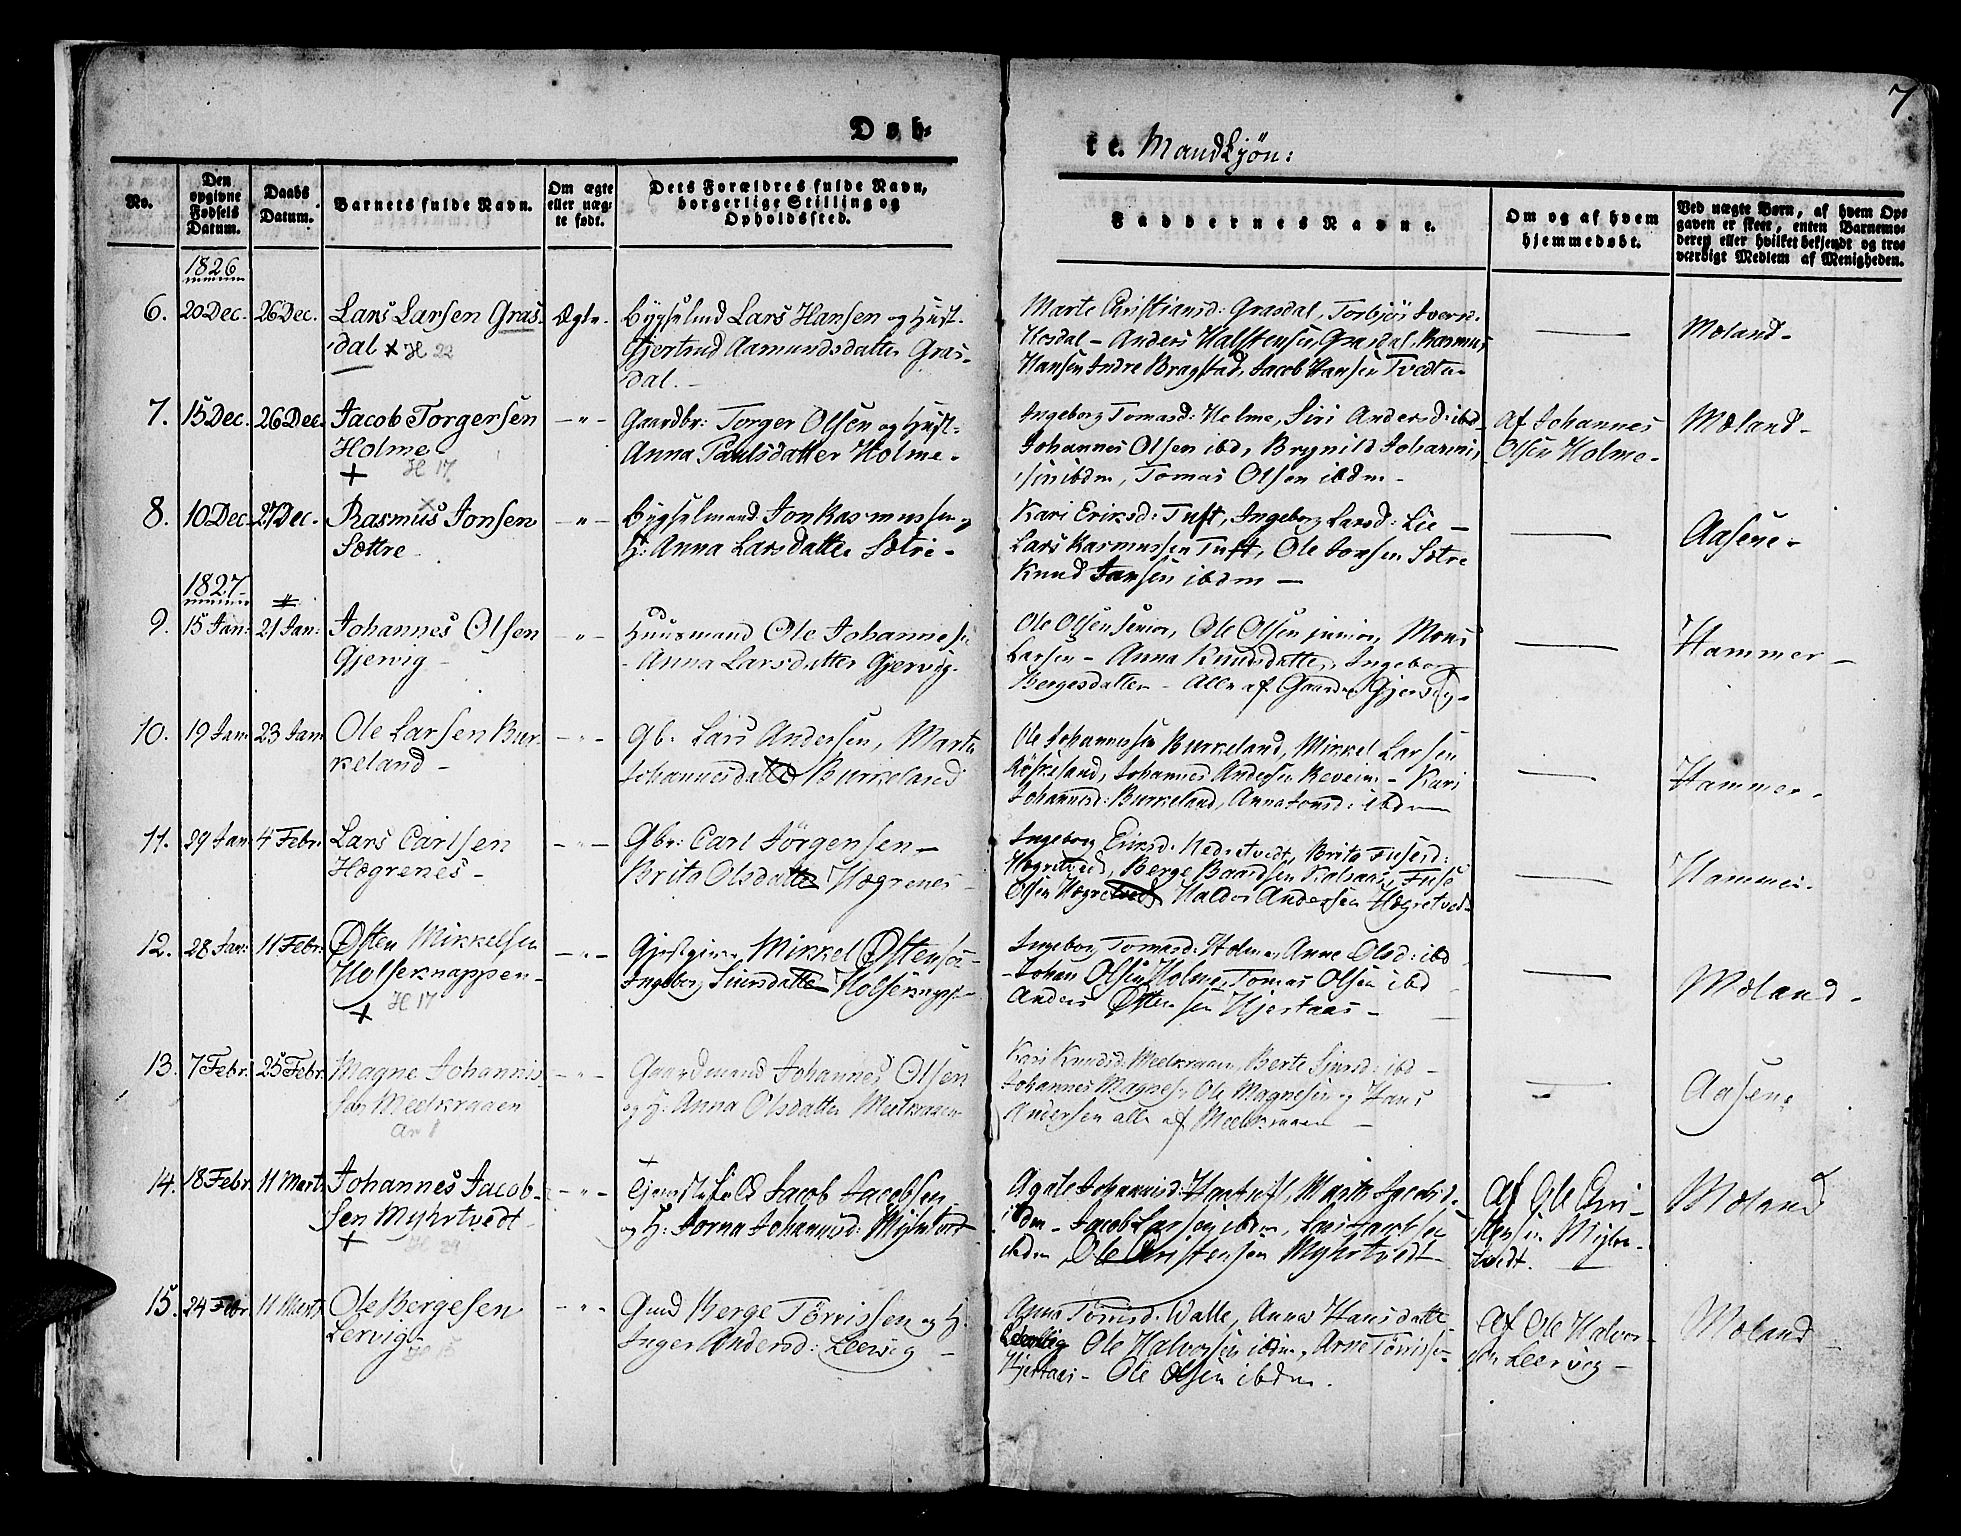 7.
Døb-
te. Mandkjøn:
No.
Den opgivne Fødsels Datum.
Daabs Datum.
Barnets fulde Navn.
Om ægte eller uægte født.
Dets Forældres fulde Navn, borgerlige Stilling og Opholdsfted.
Faddernes Navne.
Om og af hvem hjemmedøbt.
Ved uægte Børn, af hvem Opgaven er skeet, enten Barnemoderen eller hvilket bekjendt og troværdigt Medlem af Menigheden.
1826
6. 20 Dec. 26 Dec. Lars Larsen Gras-
dal + H 22
Ægte.
Lars Hansen og Hust.
Gjertrud Aamundsdatter Gras-
dal.
Marte Christiansd: Grasdal, Torbjør
Hesdal - Anders Halstensen Grasdal, Rasmus
Hansen Indre Bragstad, Jacob Hansen Tvedten
Mæland-
7. 15 Dec. 26 Dec. Jacob Torgersen
Holme
+ H 17
-"-
Gaardbr: Torger Olsen og Hust-
Anna Paulsdatter Holme-
Ingeborg Tomasd: Holme, Siri Andersd: ibd
Johannes Olsen ibd, Brynild Johanni-
sen ibdm, Tomas Olsen ibdm-
Af Johannes
Olsen Holme-
Mæland-
8. 10 Dec. 27 Dec. Rasmus Jonsen
Sættre
-"-
Bygselmand Jon Rasmussen og
H: Anna Larsdatter Sætre-
Kari Eriksd: Tuft, Ingeborg Larsd: Lie -
Lars Rasmussen Tuft, Ole Jonsen Sætre
Knud Jansen ibdm -
Aasene-
1827
9. 15 Jan: 21 Jan: Johannes Olsen
Gjervig -
-"-
Huusmand Ole Johannesen
- Anna Larsdatter Gjervig.
Ole Olsen Senior, Ole Olsen junior, Mons
Larsen - Anna Knudsdatter, Ingeborg
Bergesdatter - Alle af Gaarden Gjervig-
Hammer-
10. 19 Jan 23 Jan Ole Larsen Bur-
keland-
-"-
Gb: Lars Andersen, Marta
Johannesdatter Burkeland
Ole Johannessen Burkeland, Mikkel Larsen
Røskeland, Johannes Andersen Reveim- Kari
Johannesd: Burkeland, Anna Jonsd: ibdm
Hammer-
11. 29 Jan 4 Febr. Lars Carlsen
Hægrenes-
-"-
Gbr: Carl Jørgensen-
Brita Olsdatter Hægrenes-
Ingeborg Eriksd. Brita
Berge Baardsen
Olsen Haldor Andersen Hægretved-
Hammer-
12. 28 Jan: 11 Febr. Østen Mikkelsen
Holseknappen-
+ H 17
-"-
Mikkel Østensen
Ingeborg Siursdatter Holseknapp-
Ingeborg Tomasd: Holme, Anne Olsd: ibd
-Johan Olsen Holme, Tomas Olsen ibd
Anders Østensen Hjertaas-
Mæland-
13. 7 Febr. 25 Febr. Magne Johannis-
sen Meelkraaen
-"-
Gaardmand Johannes Olsen
og H: Anna Olsdatter Meelkraaen
Kari Knudsd: Meelkraaen, Berte Sjursd: ibd -
Johannes Magnes: Ole Magnesen og Hans
Andersen alle af Meelkraaen -
Aasene
14. 18 Febr. 11 Mart. Johannes Jacob-
sen Myhrtvedt
+ H 29
-"-
Jacob Jacobsen
og H: Johannesd: Myhrtvedt
Agate Johannisd:
ibdm - Jacob Larsen ibdm, Lars Jacobsen
ibdm, Ole Christensen Myhrtvedt
Af Ole Chri-
stensen Myhr-
tvedt.
Mæland
15. 24 Febr 11 Mart. Ole Bergesen
Lervig
H 15
-"-
Berge Tørrissen og H:
Inger Andersd: Leervig -
Anna Tørrisd: Walle, Anna Hansdatter
Leervig Ole Halvorsen ibdm, Arne Tørrissen
Hjertaas- Ole Olsen ibdm.
Af Ole Halvor-
sen Leervig-
Mæland